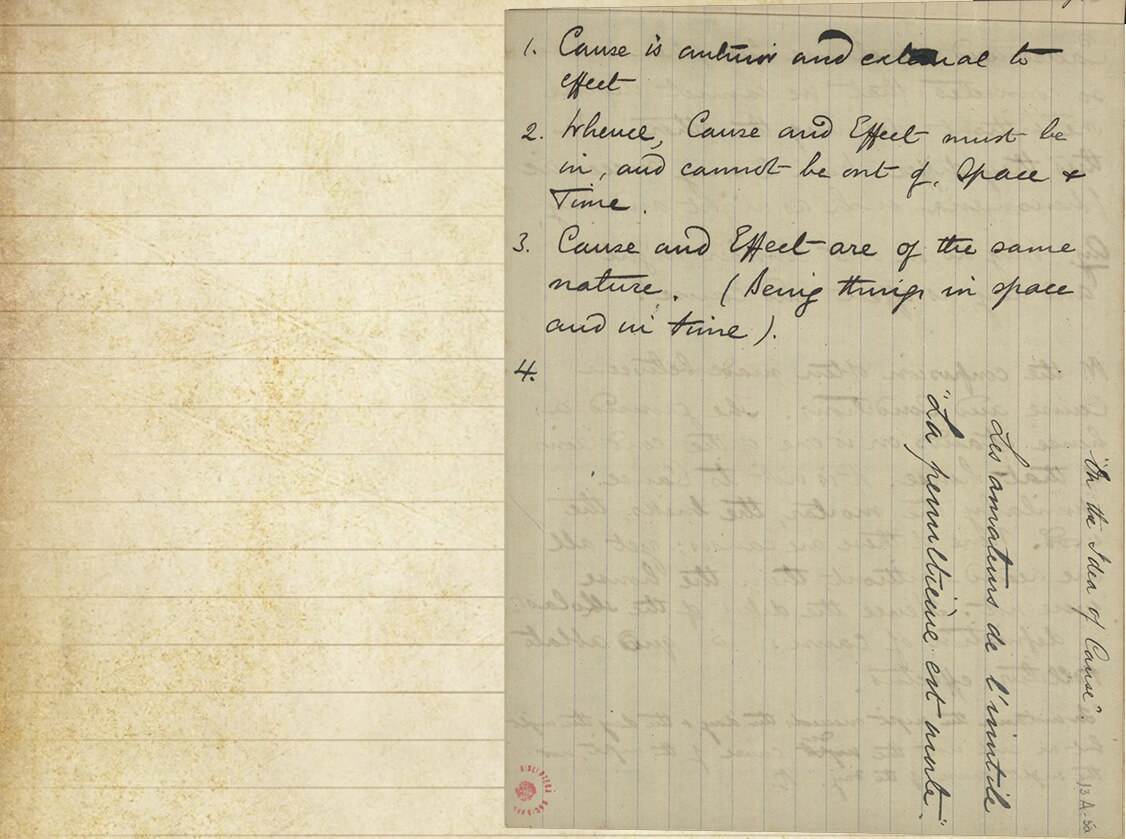 1. Cause is anterior and external to
effect
2. Whence, Cause and Effect must be
in, and cannot be out of, Space &
Time.
3. Cause and Effect are of the same
nature. (Being things in space
and in time).
4.
"La penultième est morte"
Les amateurs de l'inutile
"On the Idea of Cause"
13 A-5a